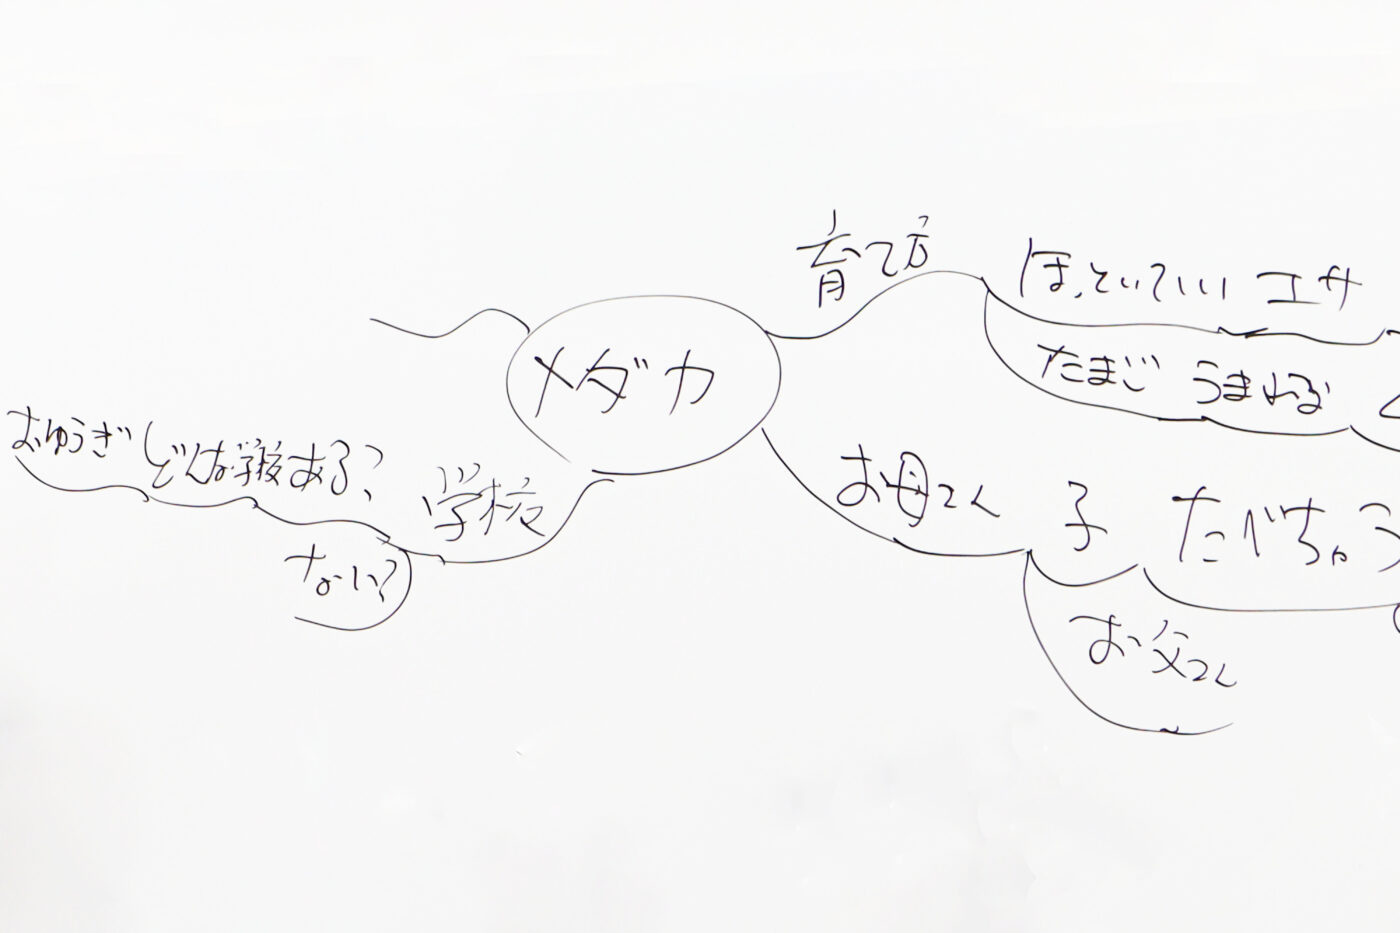 メダカ
育て方
ほっといていい エサ
たまご うまれる
お母さん 子 たべちゃう
お父さん
学校
おゆうぎ どんな学校ある?
ない?